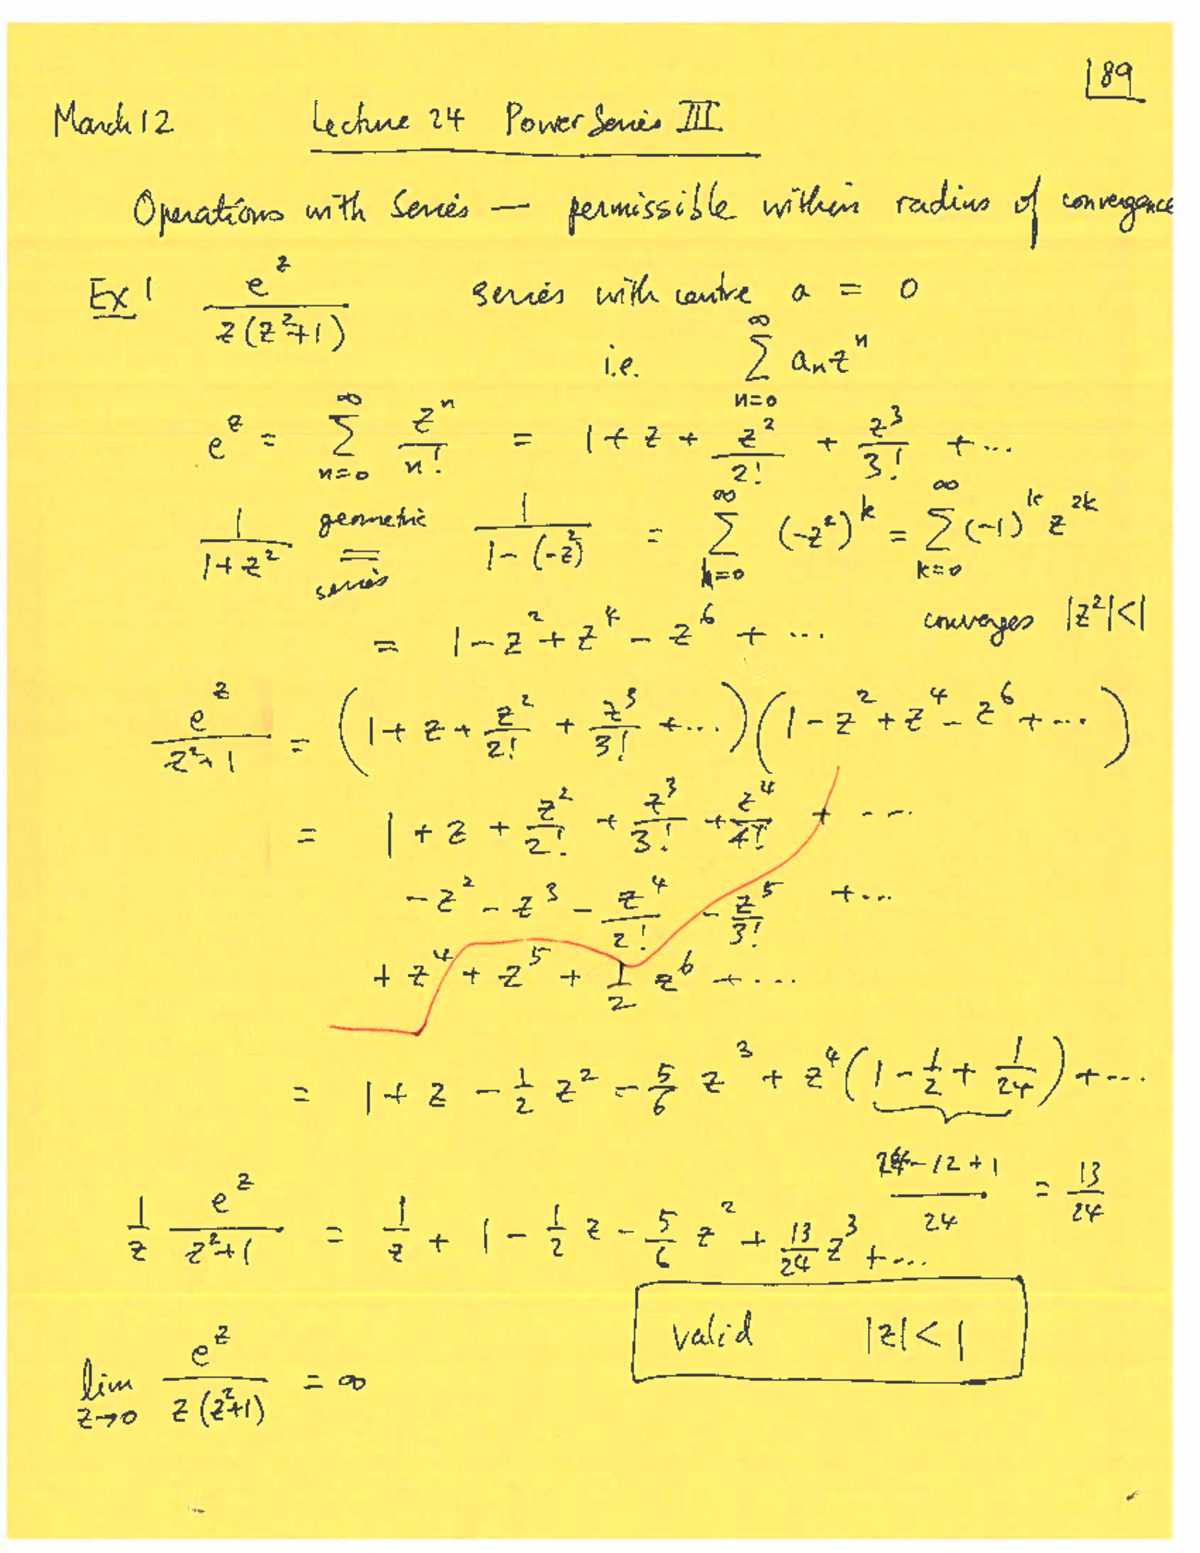 189
March 12 Lecture 24 Power Series III
Operations with Series — permissible within radius of convergence
Ex 1 e^z / (z(z^2+1)) series with centre a = 0
i.e. ∑_{n=0}^∞ a_n z^n
e^z = ∑_{n=0}^∞ z^n/n! = 1 + z + z^2/2! + z^3/3! + ...
1/(1+z^2) = (geometric series) 1/(1-(-z^2)) = ∑_{k=0}^∞ (-z^2)^k = ∑_{k=0}^∞ (-1)^k z^{2k}
= 1 - z^2 + z^4 - z^6 + ... converges |z^2|<1
e^z/(z^2+1) = (1 + z + z^2/2! + z^3/3! + ...)(1 - z^2 + z^4 - z^6 + ...)
= 1 + z + z^2/2! + z^3/3! + z^4/4! + ...
- z^2 - z^3 - z^4/2! - z^5/3! + ...
+ z^4 + z^5 + 1/2 z^6 + ...
= 1 + z - 1/2 z^2 - 5/6 z^3 + z^4 (1 - 1/2 + 1/24) + ...
(24-12+1)/24 = 13/24
1/z e^z/(z^2+1) = 1/z + 1 - 1/2 z - 5/6 z^2 + 13/24 z^3 + ...
valid |z| < 1
lim_{z→0} e^z/(z(z^2+1)) = ∞